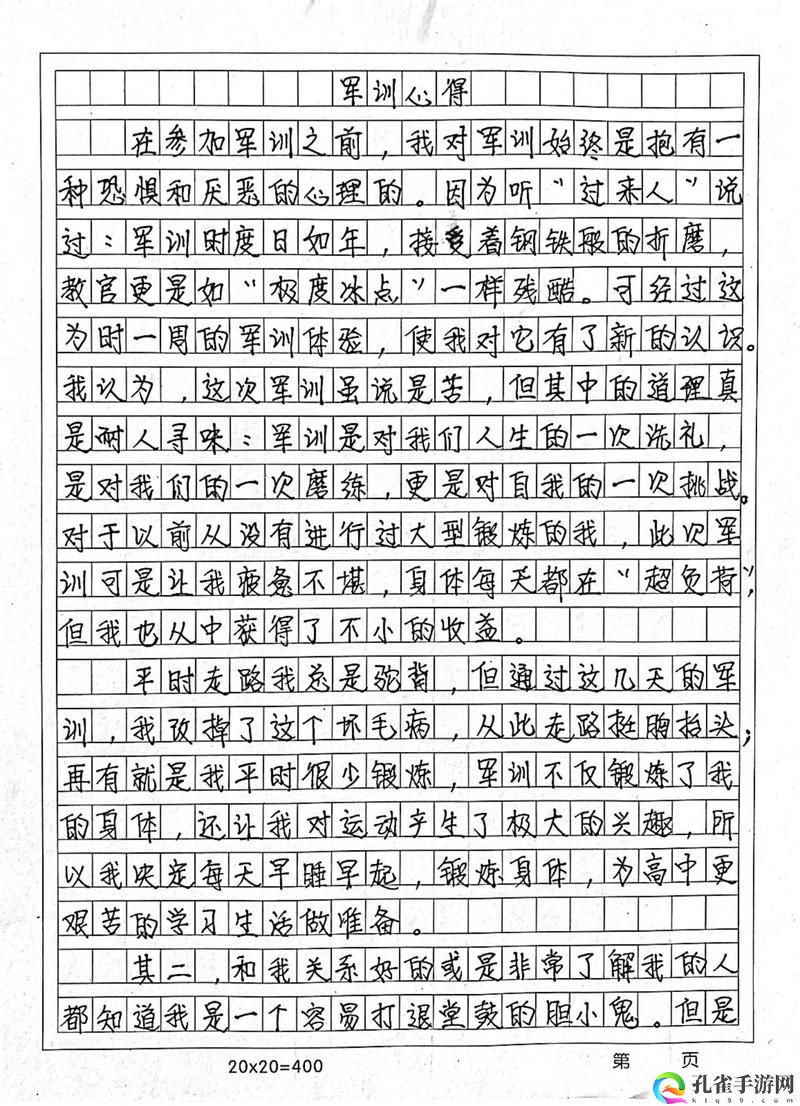 军训心得
在参加军训之前，我对军训始终是抱有一
种恐惧和厌恶的心理的。因为听“过来人”说
过：军训时度日如年，接受着钢铁般的折磨，
教官更是如“极度冰点”一样残酷。可经过这
为时一周的军训体验，使我对它有了新的认识。
我认为，这次军训虽说是苦，但其中的道理真
是耐人寻味：军训是对我们人生的一次洗礼，
是对我们的一次磨练，更是对自我的一次挑战。
对于以前从没有进行过大型锻炼的我，此次军
训可是让我疲惫不堪，身体每天都在“超负荷”，
但我也从中获得了不小的收益。
平时走路我总是驼背，但通过这几天的军
训，我改掉了这个坏毛病，从此走路挺胸抬头；
再有就是我平时很少锻炼，军训不仅锻炼了我
的身体，还让我对运动产生了极大的兴趣，所
以我决定每天早睡早起，锻炼身体，为高中更
艰苦的学习生活做准备。
其二，和我关系好的或是非常了解我的人
都知道我是一个容易打退堂鼓的胆小鬼。但是
20×20=400 第 页
孔雀手游网
ktq99.com